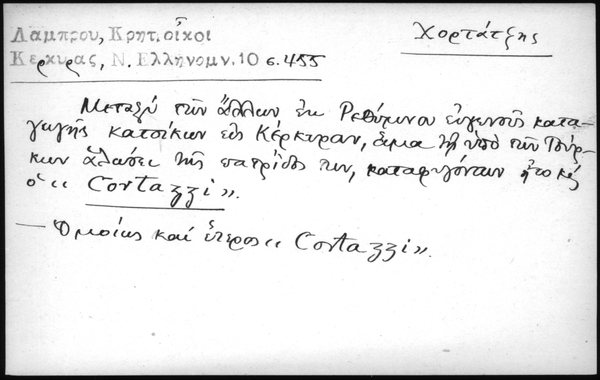 Λάμπρου, Κρητ.οἶκοι
Χορτάτζης
Κερκύρας, Ν.Ἑλληνομν.10 σ.455
Μεταξὺ τῶν ἄλλων ἐκ Ρεθύμνου εὐγενοῦς κατα-
γωγῆς κατοίκων εἰς Κέρκυραν, ἅμα τῇ ὑπὸ τῶν Τούρ-
κων ἁλώσει τῆς πατρίδος των, καταφυγόντων ἦτο καὶ
ὁ «Cortazzi».
— Ὁμοίως καὶ ἕτερος «Cortazzi».